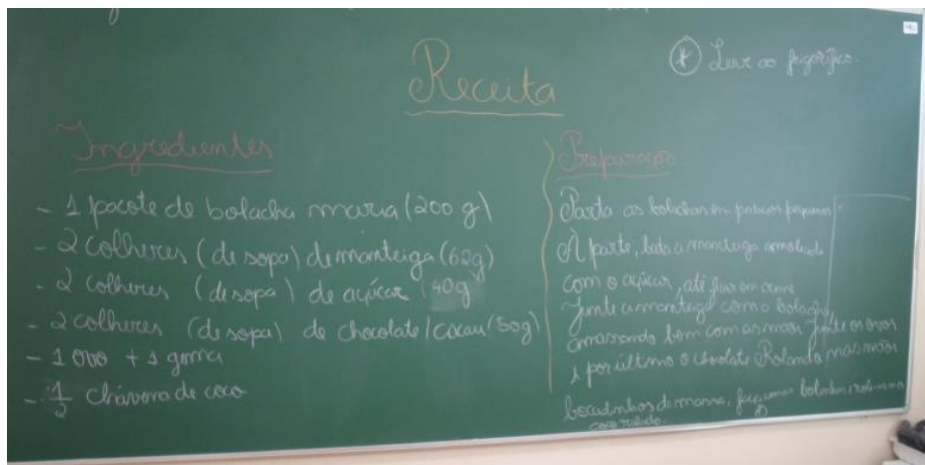 Receita
* Levar ao frigorífico.
Ingredientes
- 1 pacote de bolacha maria (200 g)
- 2 colheres (de sopa) de manteiga (62g)
- 2 colheres (de sopa) de açúcar (40g
- 2 colheres (de sopa) de chocolate/cacau (50g)
- 1 ovo + 1 gema
- 1/2 chávena de coco
Preparação
Parta as bolachas em pedaços pequenos.
À parte, bata a manteiga amolecida
com o açúcar, até ficar em creme
Junte a manteiga com a bolacha,
amassando bem com as mãos Junte os ovos
e por último o chocolate Rolando nas mãos
bocadinhos de massa, faça umas bolinhas e role-as no
coco ralado.